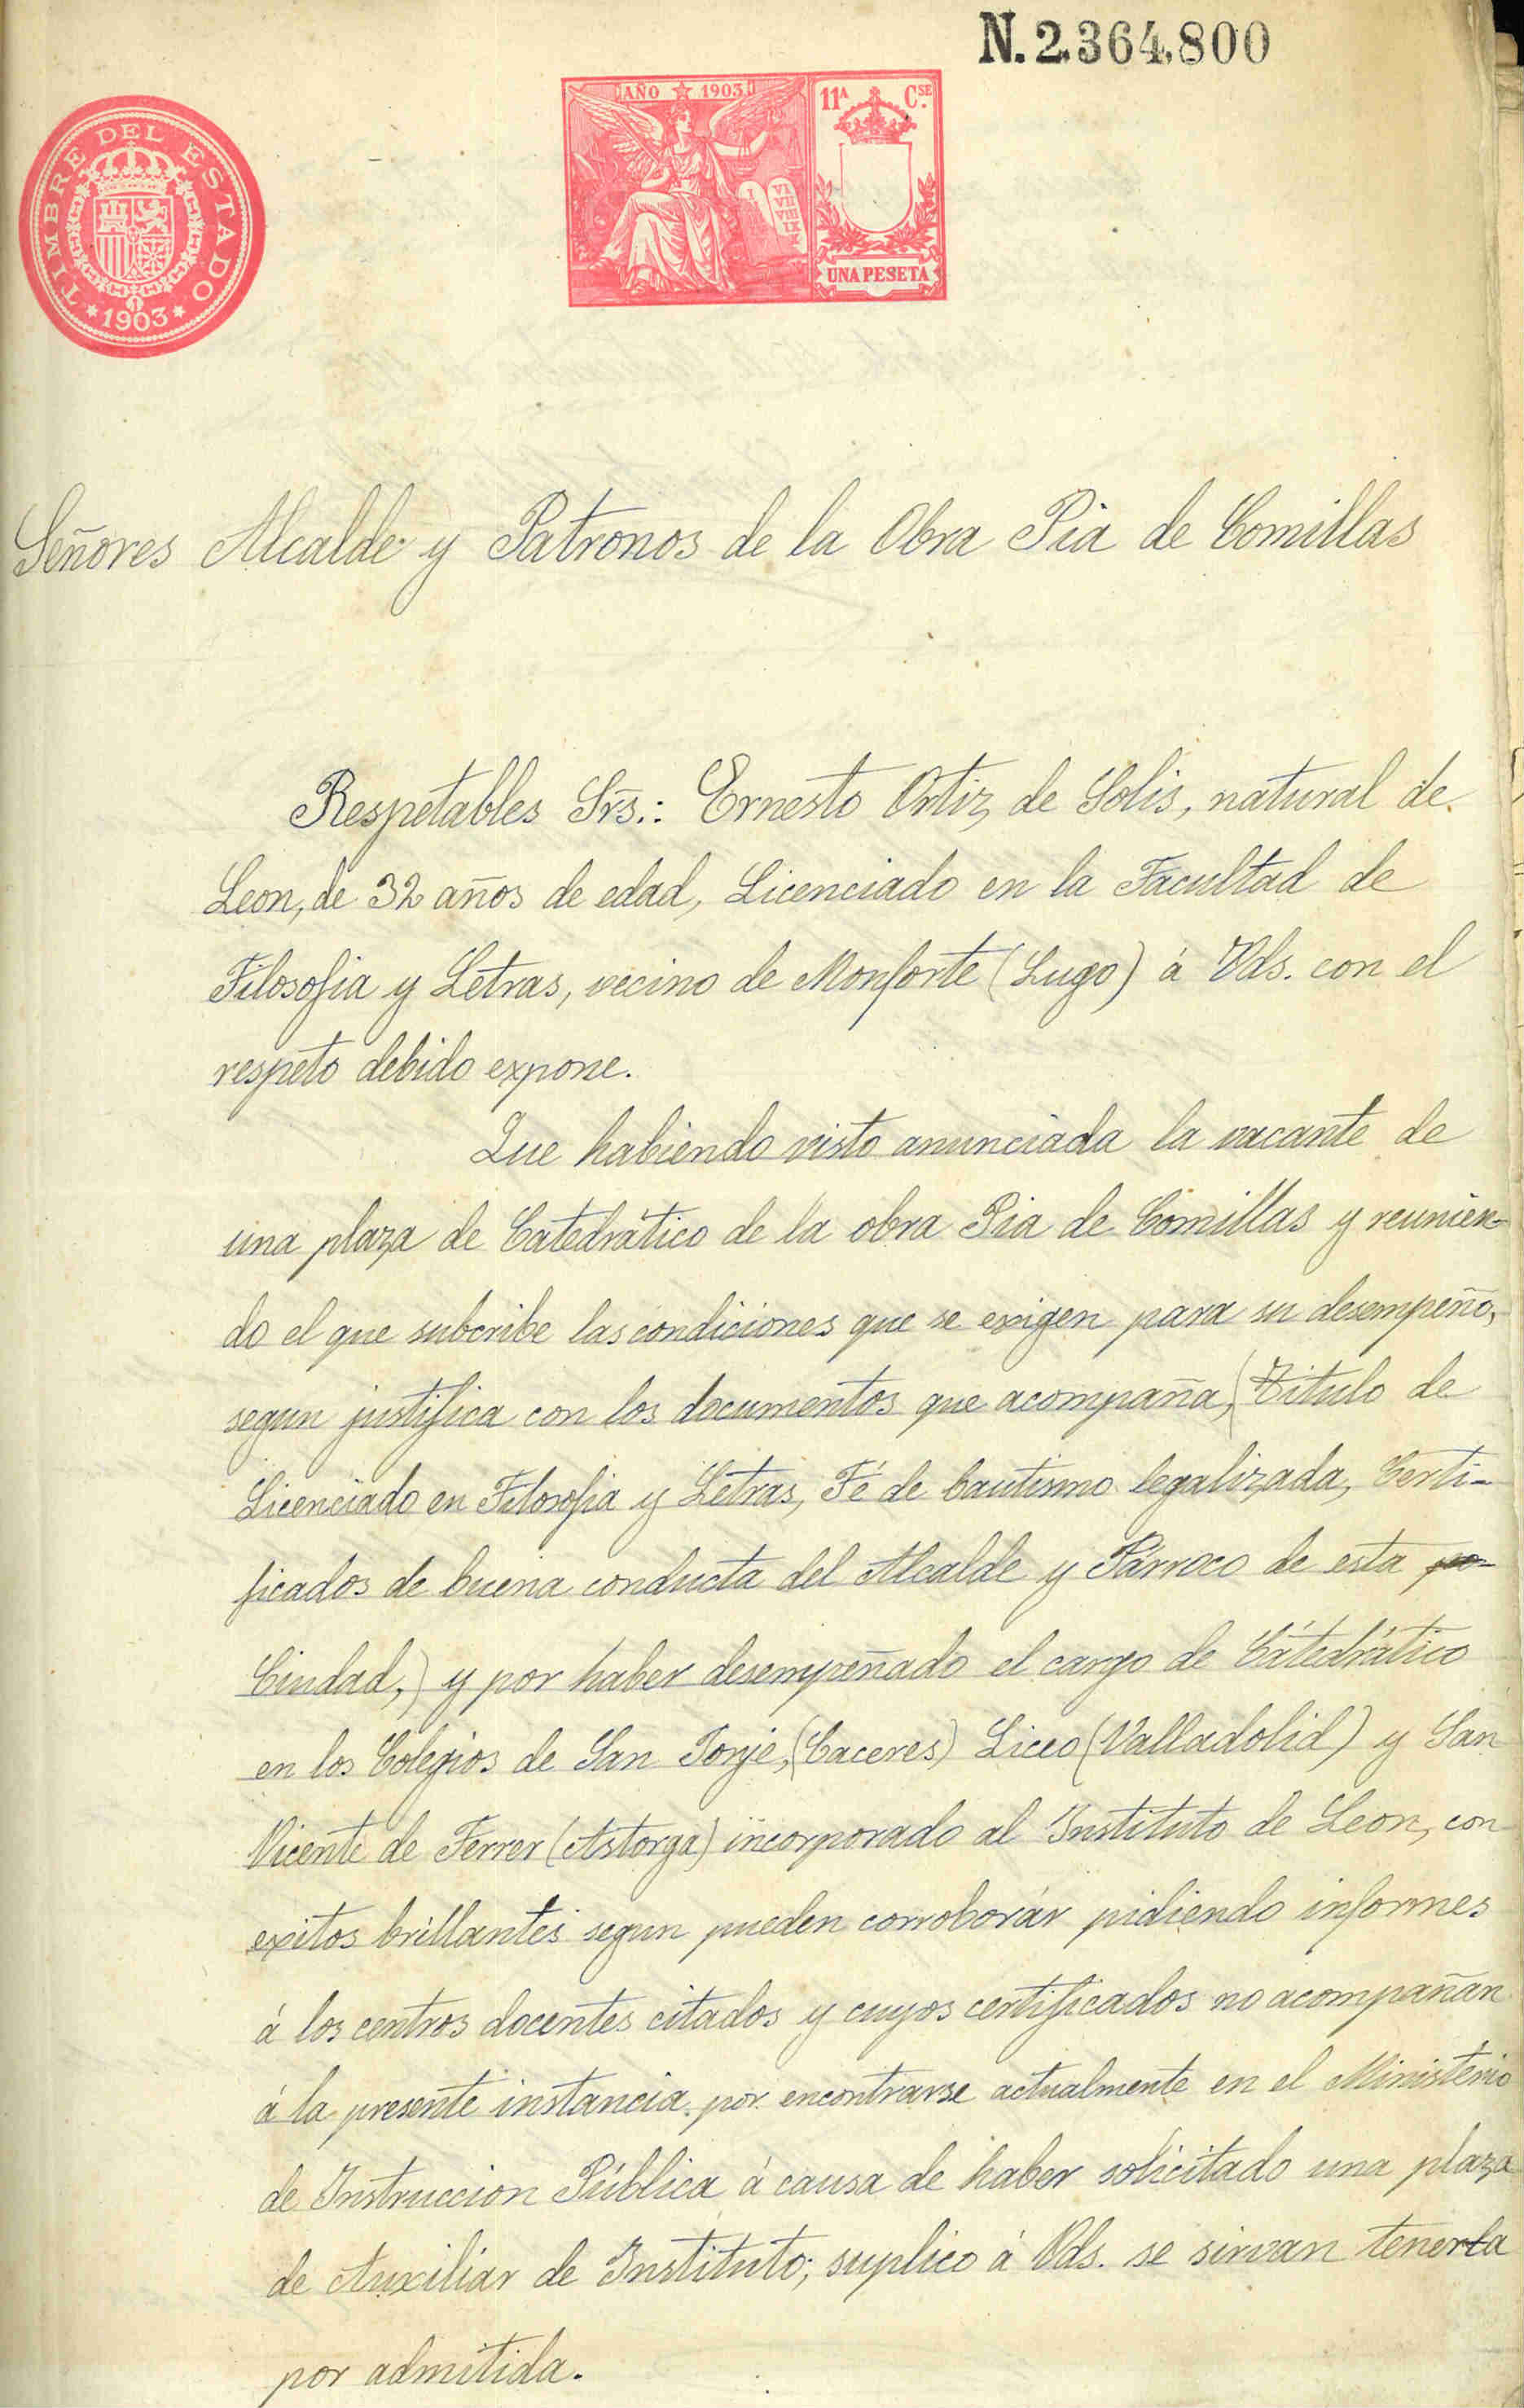 N.2.364.800
TIMBRE DEL ESTADO
1903
AÑO 1903
11ª Cse
I VI VII VIII IX
UNA PESETA
Señores Alcalde y Patronos de la Obra Pia de Comillas
Respetables Srs.: Ernesto Ortiz de Solis, natural de
Leon, de 32 años de edad, Licenciado en la Facultad de
Filosofia y Letras, vecino de Monforte (Lugo) á Vds. con el
respeto debido expone.
Que habiendo visto anunciada la vacante de
una plaza de Catedrático de la obra Pia de Comillas y reunien-
do el que subcribe las condiciones que se exigen para su desempeño,
segun justifica con los documentos que acompaña, (Titulo de
Licenciado en Filosofia y Letras, Fé de bautismo legalizada, Certi-
ficados de buena conducta del Alcalde y Párroco de esta po-
Ciudad,) y por haber desempeñado el cargo de Cátedrático
en los Colegios de San Jorje, (Caceres) Liceo (Valladolid) y San
Vicente de Ferrer (Astorga) incorporado al Instituto de Leon, con
exitos brillantes segun pueden corroborár pidiendo informes
á los centros docentes citados y cuyos certificados no acompañan
á la presente instancia por encontrarse actualmente en el Ministerio
de Instruccion Pública á causa de haber solicitado una plaza
de Auxiliar de Instituto; suplico á Vds. se sirvan tenerla
por admitida.